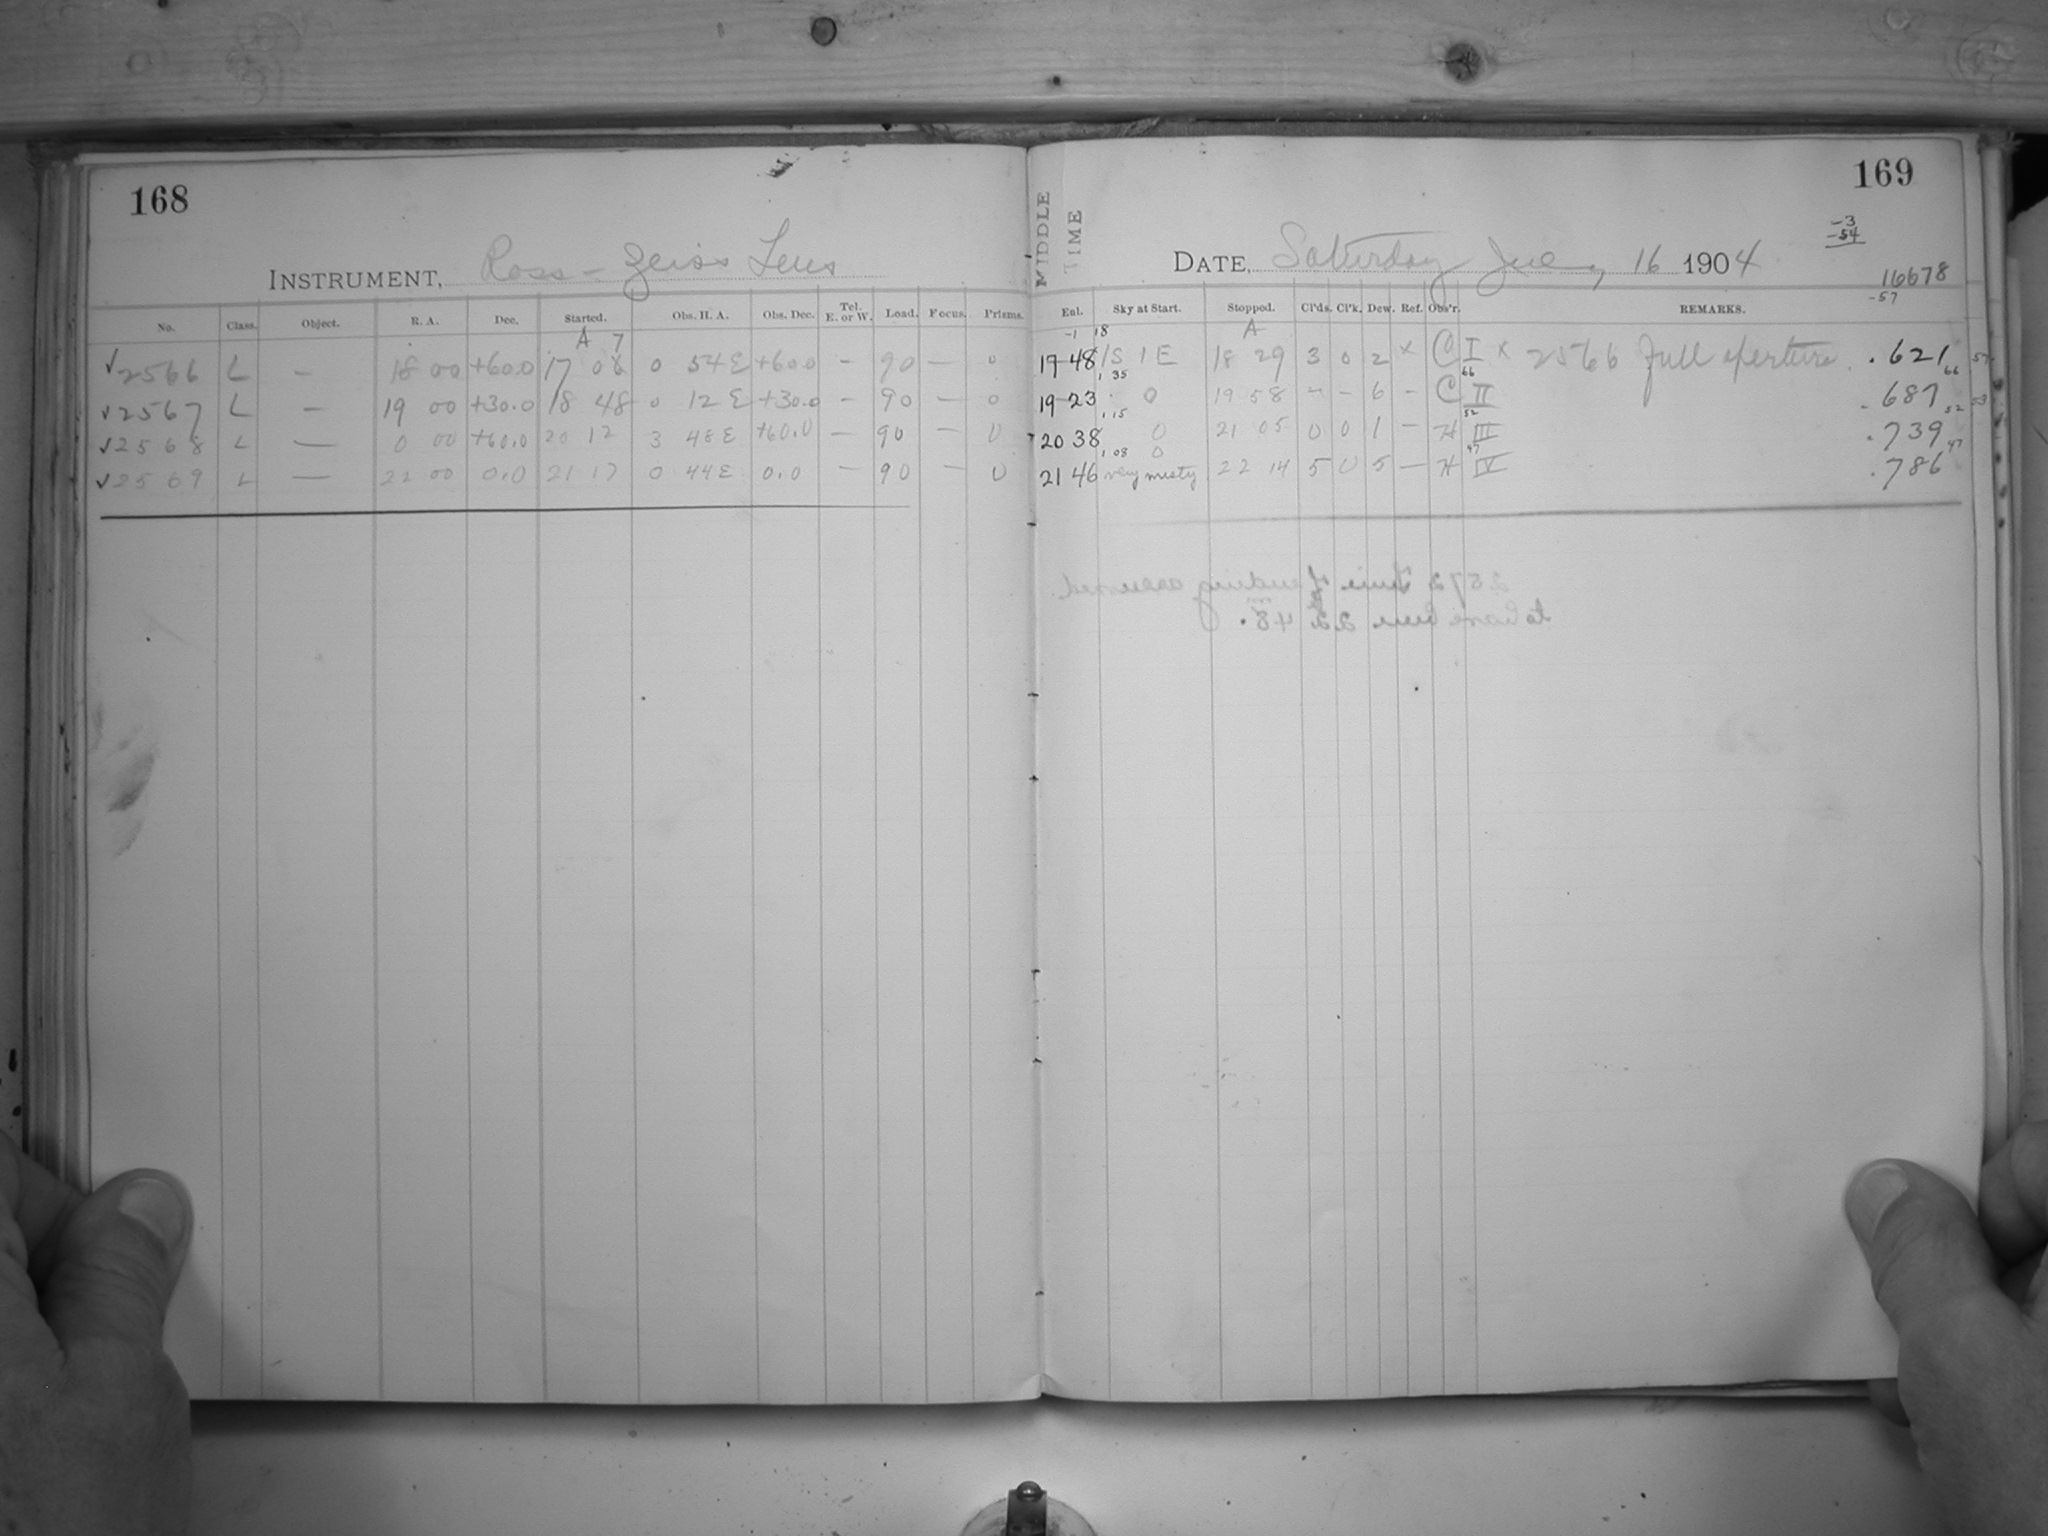 168
INSTRUMENT, Ross-Zeiss Lens
No. Class. Object. R. A. Dec. Started. Obs. H. A. Obs. Dec. Tel. E. or W. Load. Focus. Prisms.
A 7
✓2566 L — 18 00 +60.0 17 08 0 54 E +60.0 — 90 — 0
✓2567 L — 19 00 +30.0 18 48 0 12 E +30.0 — 90 — 0
✓2568 L — 0 00 +60.0 20 12 3 48 E +60.0 — 90 — 0
✓2569 L — 22 00 0.0 21 17 0 44 E 0.0 — 90 — 0
169
MIDDLE TIME
DATE, Saturday July 16 1904
-3
-54
16678
-57
Eql. Sky at Start. Stopped. Cl'ds. Cl'k. Dew. Ref. Obs'r. REMARKS.
-1 18 A
17 48 1S 1E 18 29 3 0 2 × C I × 2566 full aperture. .621
1 35 66 66
19 23 0 19 58 — — 6 — C II .687
1 15 52 52
20 38 0 21 05 0 0 1 — H III .739
1 08 0 47 47
21 46 very misty 22 14 5 0 5 — H IV .786
2572 Time of ending assumed
to have been 22 48.